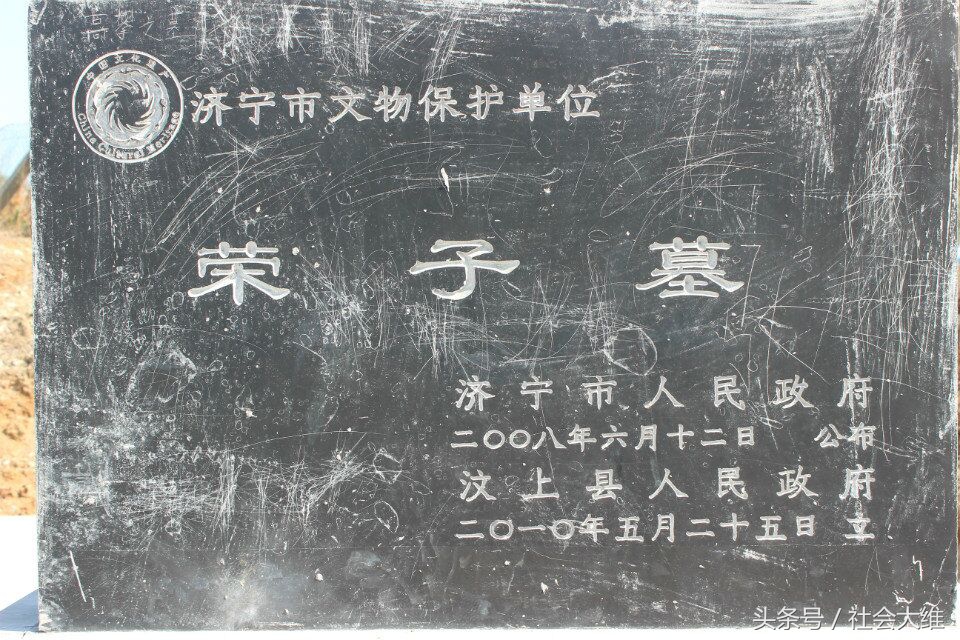 中国文化遗产
China Cultural Heritage
济宁市文物保护单位
荣子墓
济宁市人民政府
二〇〇八年六月十二日 公布
汶上县人民政府
二〇一〇年五月二十五日 立
头条号 / 社会大维